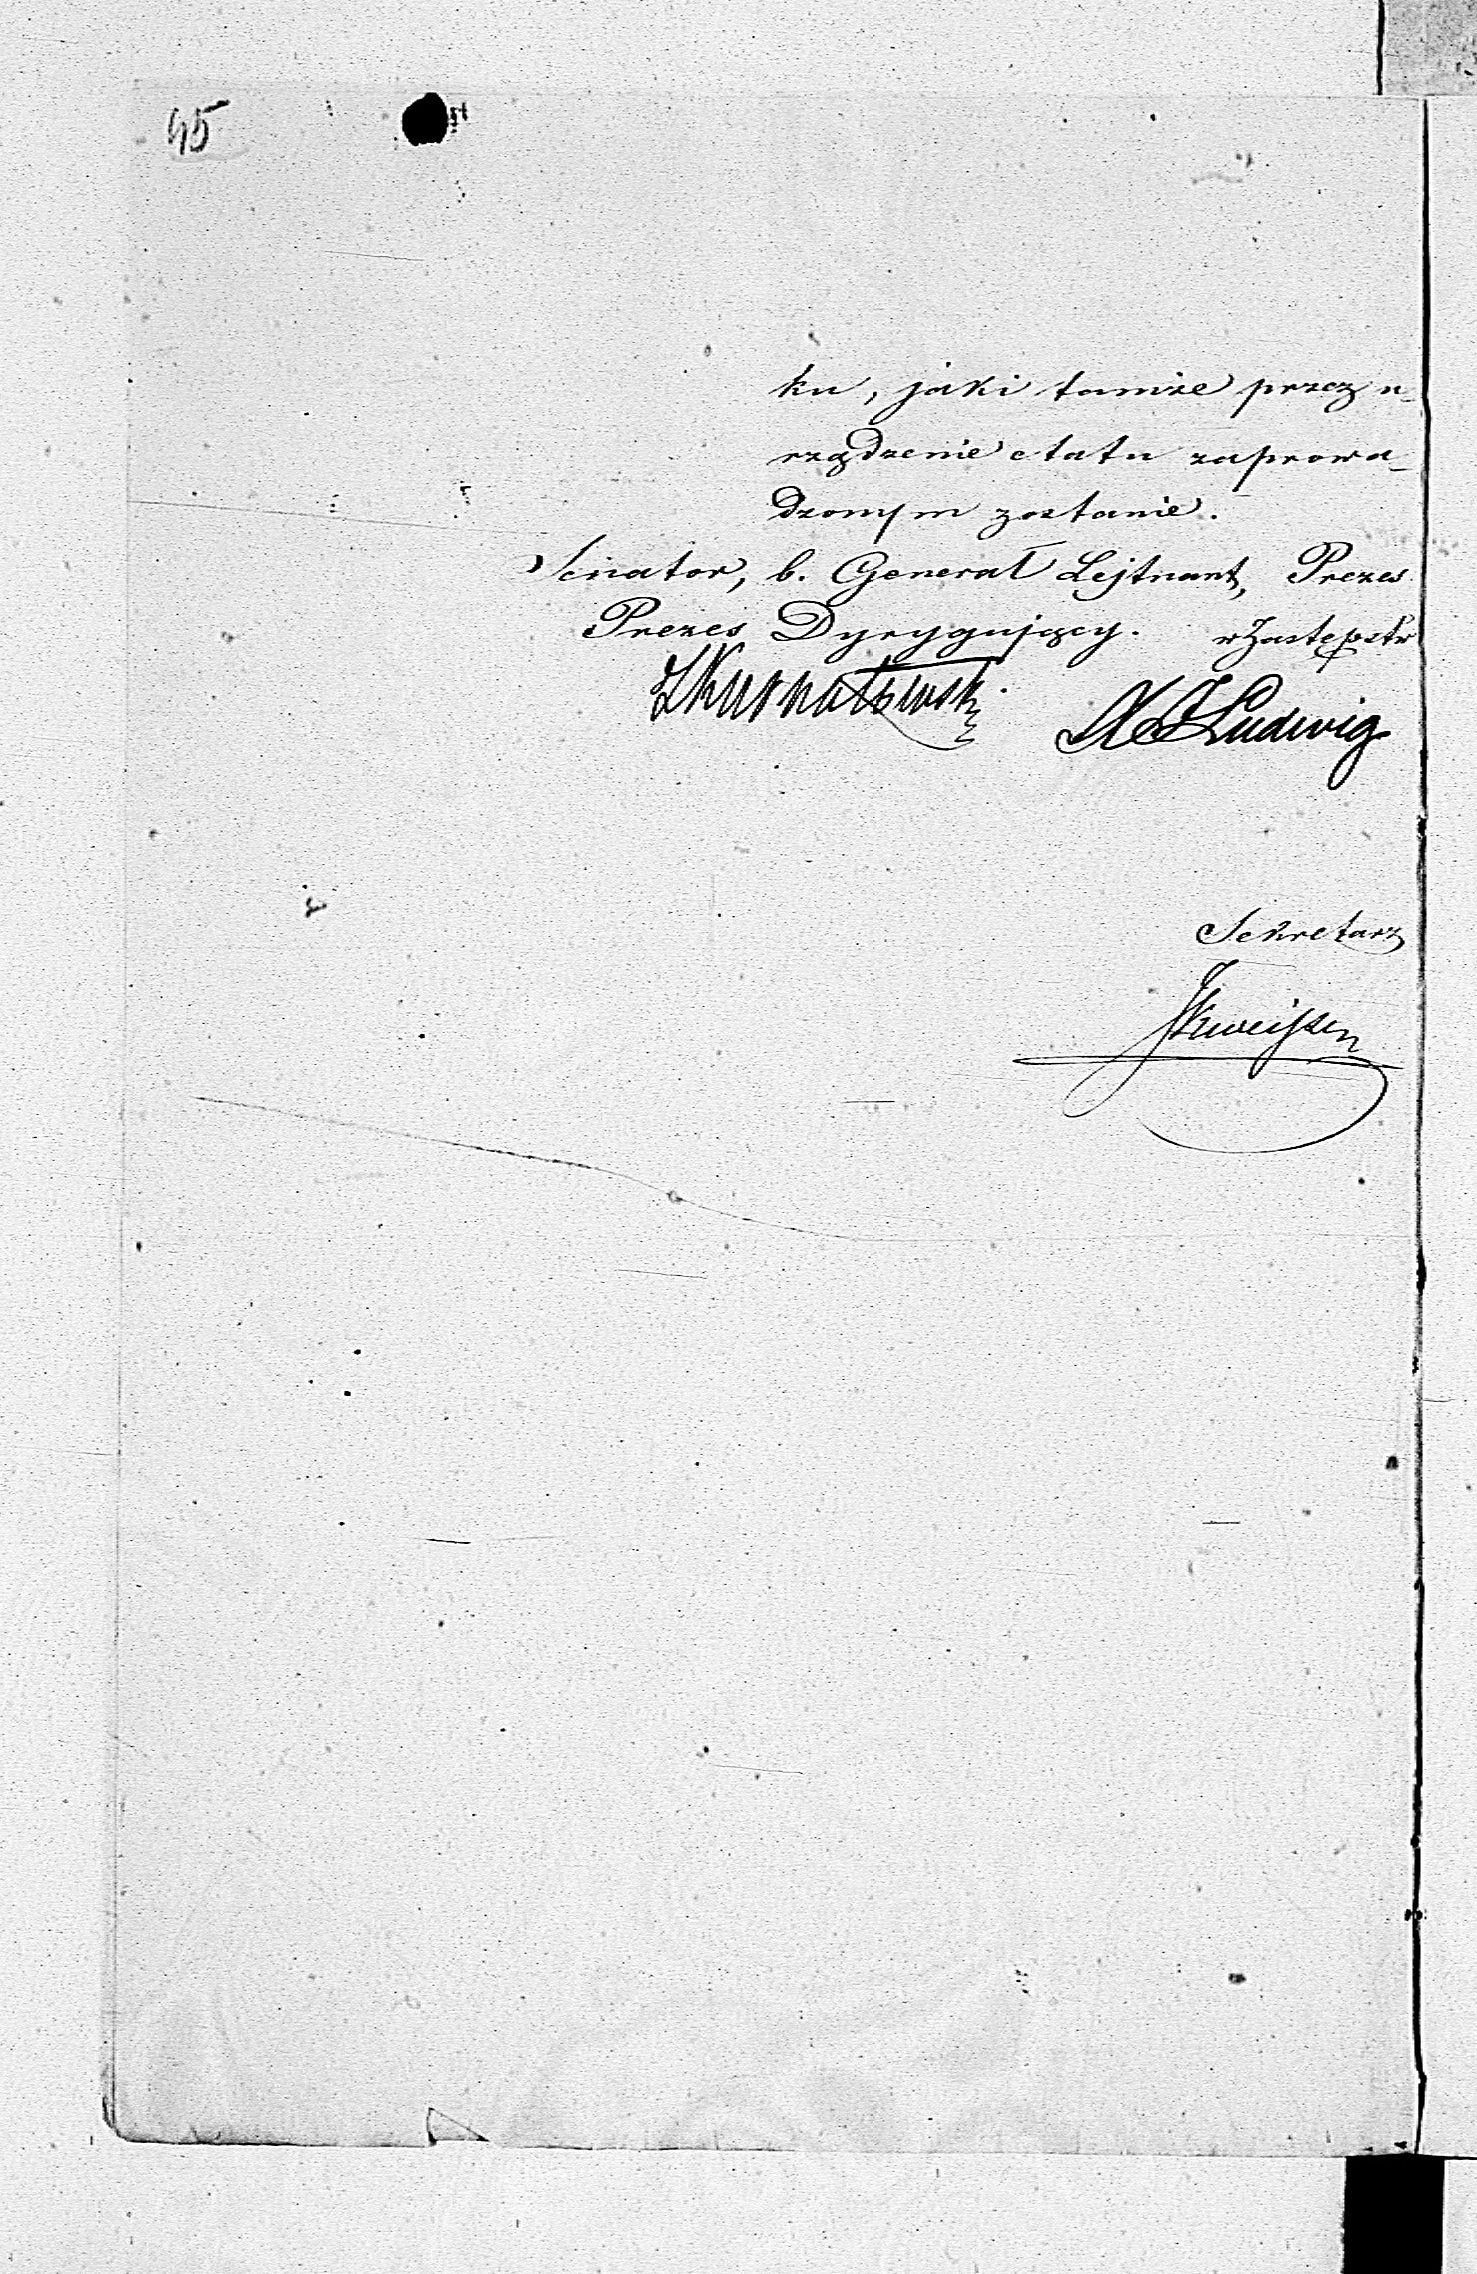 45
ku, jaki tamże przez u-
rządzenie etatu zaprowa-
dzonym zostanie.
Senator, b. Generał Lejtnant, Prezes
Prezes Dyrygujący. w Zastępstw
Kurnatowski
Ludwig
Sekretarz